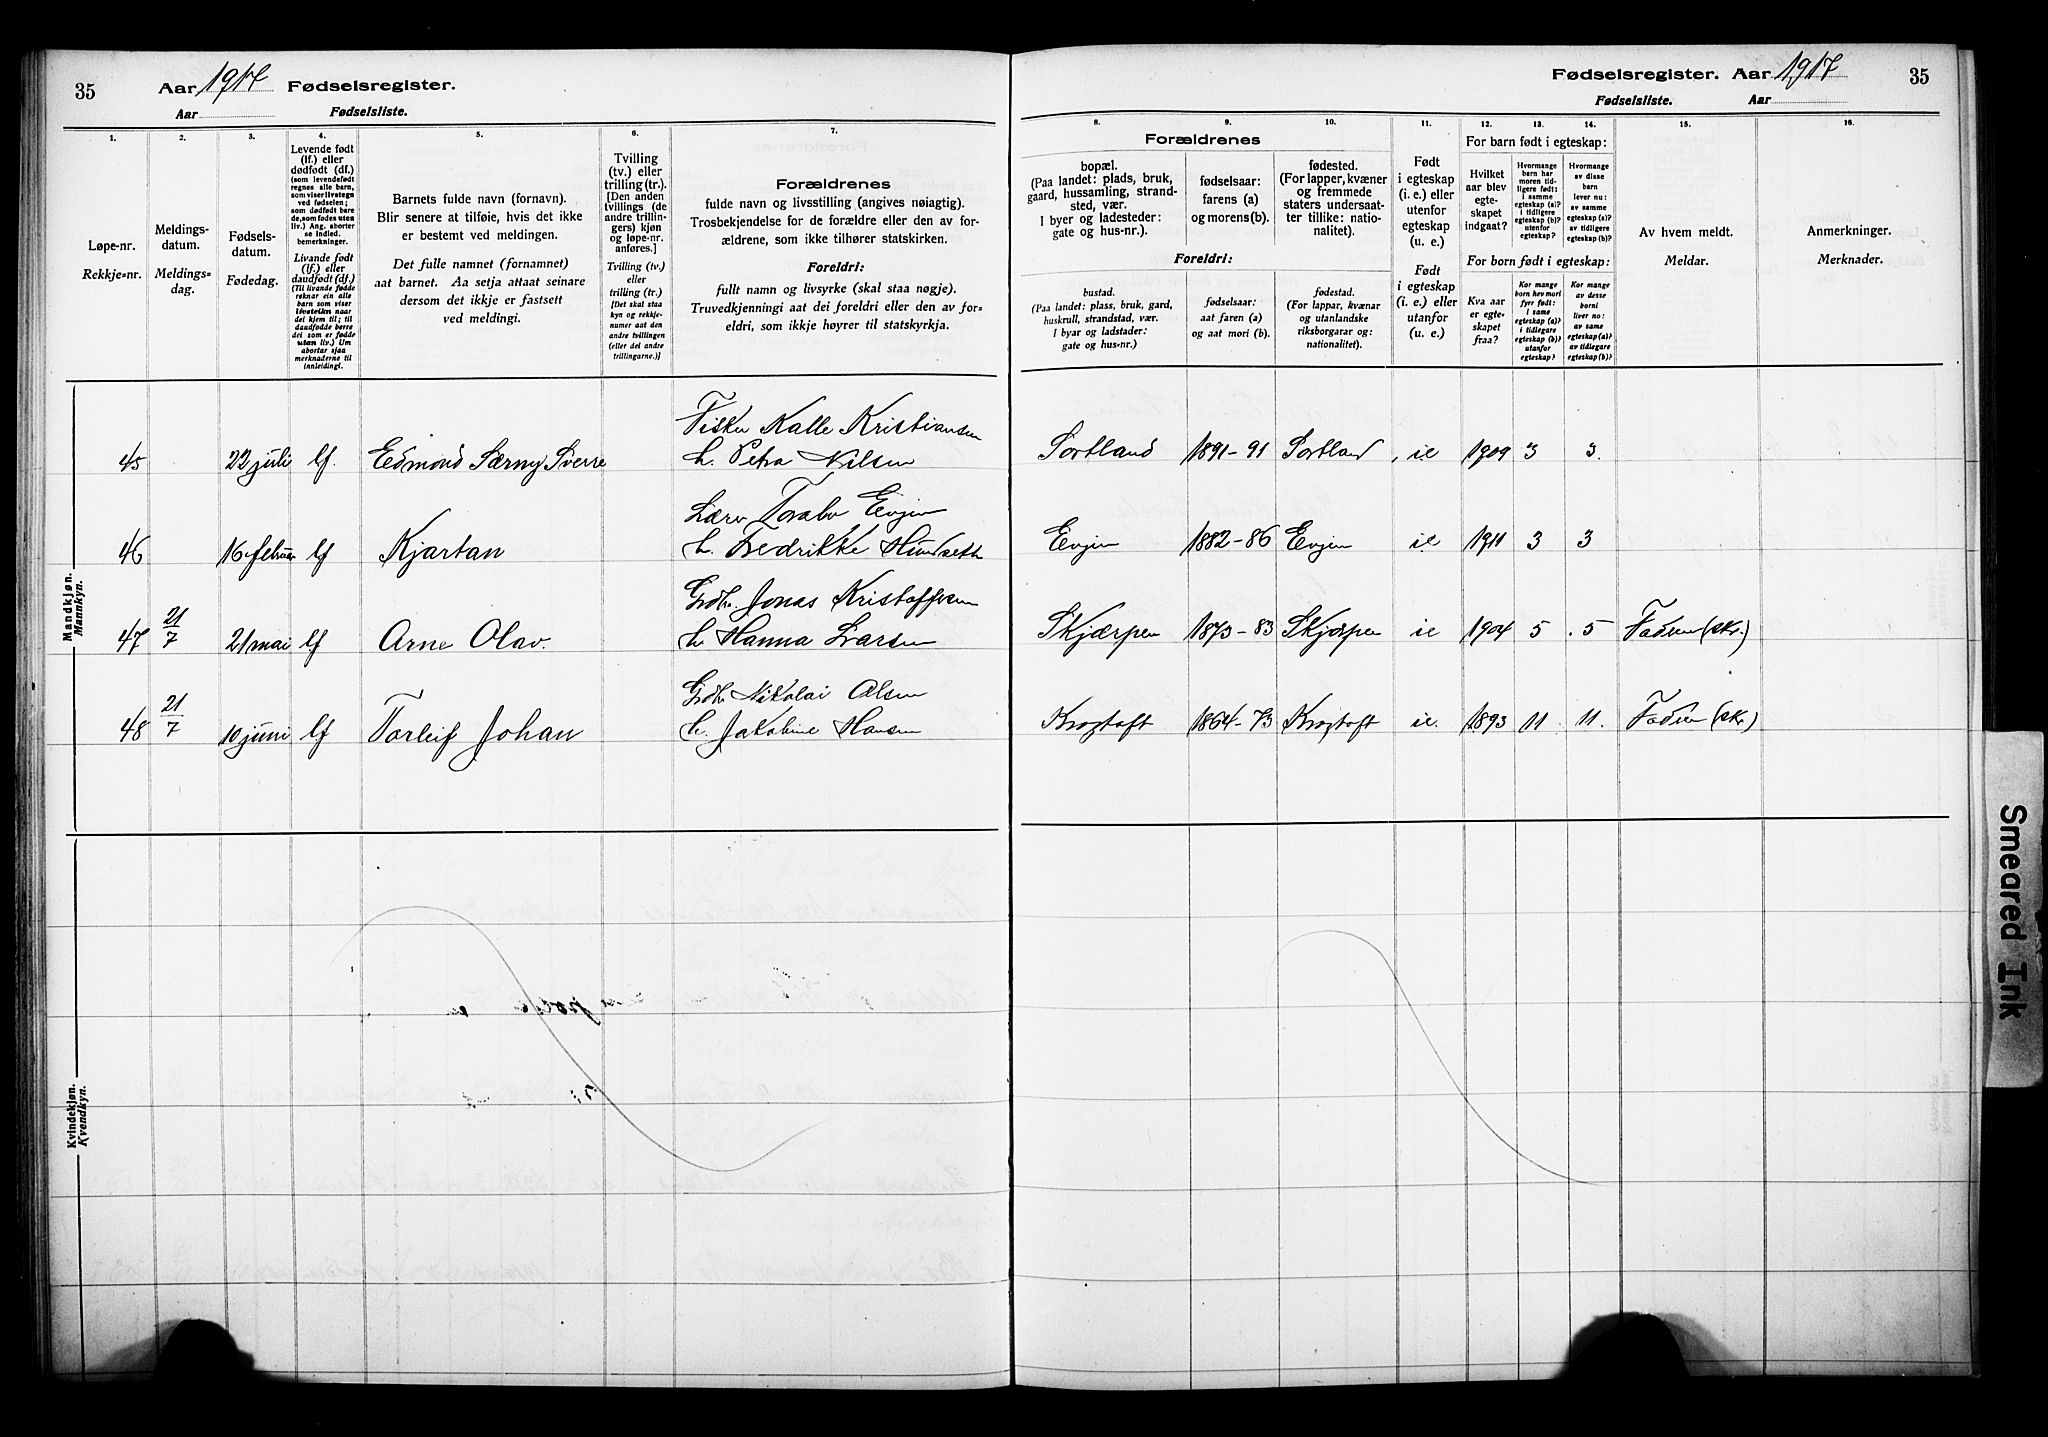 35 Aar 1917 Fødselsregister.
Aar Fødselsliste.
Fødselsregister. Aar 1917 35
Fødselsliste. Aar
1. 2. 3. 4. 5. 6. 7.
Løpe-nr.
Rekkje-nr.
Meldings-
datum.
Meldings-
dag.
Fødsels-
datum.
Fødedag.
Levende født
(lf.) eller
dødfødt (df.)
(som levendefødt
regnes alle barn,
som viser livstegn
ved fødselen;
som dødfødt bare
de, som fødes uten
liv.) Ang. aborter
se indled.
bemerkninger.
Livande fødd
(lf.) eller
daudfødt (df.)
(Til livande fødde
reknar ein alle
born som viser
livsteikn naar
dei kjem til; til
daudfødde berre
dei som er fødde
utan liv.) Um
abortar sjaa
merknaderne til
innleidingi.
Barnets fulde navn (fornavn).
Blir senere at tilføie, hvis det ikke
er bestemt ved meldingen.
Det fulle namnet (fornamnet)
aat barnet. Aa setja attaat seinare
dersom det ikkje er fastsett
ved meldingi.
Tvilling
(tv.) eller
trilling (tr.).
[Den anden
tvillings (de
andre trillin-
gers) kjøn
og løpe-nr.
anføres.]
Tvilling (tv.)
eller
trilling (tr.)
[Det skal staa
kyn og rekkje-
numer aat den
andre tvillingen
(eller dei andre
trillingarne.)]
Forældrenes
fulde navn og livsstilling (angives nøiagtig).
Trosbekjendelse for de forældre eller den av for-
ældrene, som ikke tilhører statskirken.
Foreldri:
fullt namn og livsyrke (skal staa nøgje).
Truvedkjenningi aat dei foreldri eller den av for-
eldri, som ikkje høyrer til statskyrkja.
8. 9. 10. 11. 12. 13. 14. 15. 16.
Forældrenes
bopæl.
(Paa landet: plads, bruk,
gaard, hussamling, strand-
sted, vær.
I byer og ladesteder:
gate og hus-nr.).
fødselsaar:
farens (a)
og morens (b).
fødested.
(For lapper, kvæner
og fremmede
staters undersaat-
ter tillike: natio-
nalitet).
Foreldri:
bustad.
(Paa landet: plass, bruk, gard,
huskrull, strandstad, vær.
I byar og ladstader:
gate og hus-nr.)
fødselsaar:
aat faren (a)
og aat mori (b).
fødestad.
(For lappar, kvænar
og utanlandske
riksborgarar og:
nationalitet).
Født
i egteskap
(i. e.) eller
utenfor
egteskap
(u. e.)
Født
i egteskap
(i. e.) eller
utanfor
(u. e.)
For barn født i egteskap:
Hvilket
aar blev
egte-
skapet
indgaat?
Hvormange
barn har
moren tid-
ligere født:
i samme
egteskap (a)?
i tidligere
egteskap (b)?
utenfor
egteskap?
Hvormange
av disse
barn
lever nu:
av samme
egteskap (a)?
av tidligere
egteskap (b)?
For born født i egteskap:
Kva aar
er egte-
skapet
fraa?
Kor mange
born hev mori
fyrr født:
i same
egteskap (a)?
i tidlegare
egteskap (b)?
utanfor
egteskap?
Kor mange
av desse
borni
liver no:
av same
egteskap (a)?
av tidlegare
egteskap (b)?
Av hvem meldt.
Meldar.
Anmerkninger.
Merknader.
Mandkjøn.
Mannkyn.
Fisker Kalle Kristiansen
45 22 juli lf. Edmond Særny Sverre h. Petra Nilsen Sortland 1891-91 Sortland ie 1909 3 3.
Lærer Toralv Evjen
46 16 februar lf Kjartan h. Fredrikke Hundseth Evjen 1882-86 Evjen ie 1911 3 3
Grdbr. Jonas Kristoffersen
47 21/7 21 mai lf Arne Olav. h Hanna Larsen Skjærpen 1873-83 Skjærpen ie 1904 5 5 Faderen (skr.)
Grdbr Nikolai Olsen
48 21/7 10 juni lf Torleif Johan h. Jakobine Hansen Krogtoft 1864-73 Krogtoft ie. 1893 11 11. Faderen (skr.)
Kvindekjøn.
Kvendkyn.
Smeared Ink